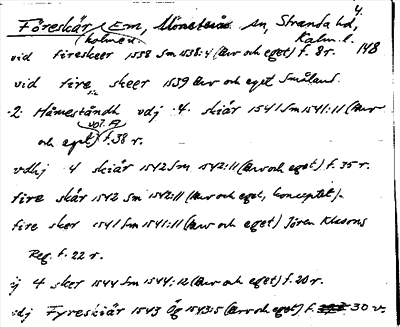 Föreskär, Enr, Mönsterås sn, Stranda hd, 4.
(holmen) Kalm. l.
vid fireskeer 1538 Sm 1538:4 (Arv och eget) f. 8r. 148
vid fire skeer 1539 Arv och eget Småland.
2 vdj 4 skiär 1541 Sm 1541:11 (Arv
och eget) f. 38 r.
vdhj 4 skiär 1542 Sm 1542:11 (Arv och eget) f. 35 r.
fire skär 1542 Sm 1542:11 (Arv och eget, konceptet).
fire sker 1541 Sm 1541:11 (Arv och eget) Jören Klasons
Reg. f. 22 r.
ij 4 sker 1544 Sm 1544:12 (Arv och eget) f. 20 r.
vdj Fyreskiär 1543 Ög 1543:5 (Arv och eget) f. 30 v.